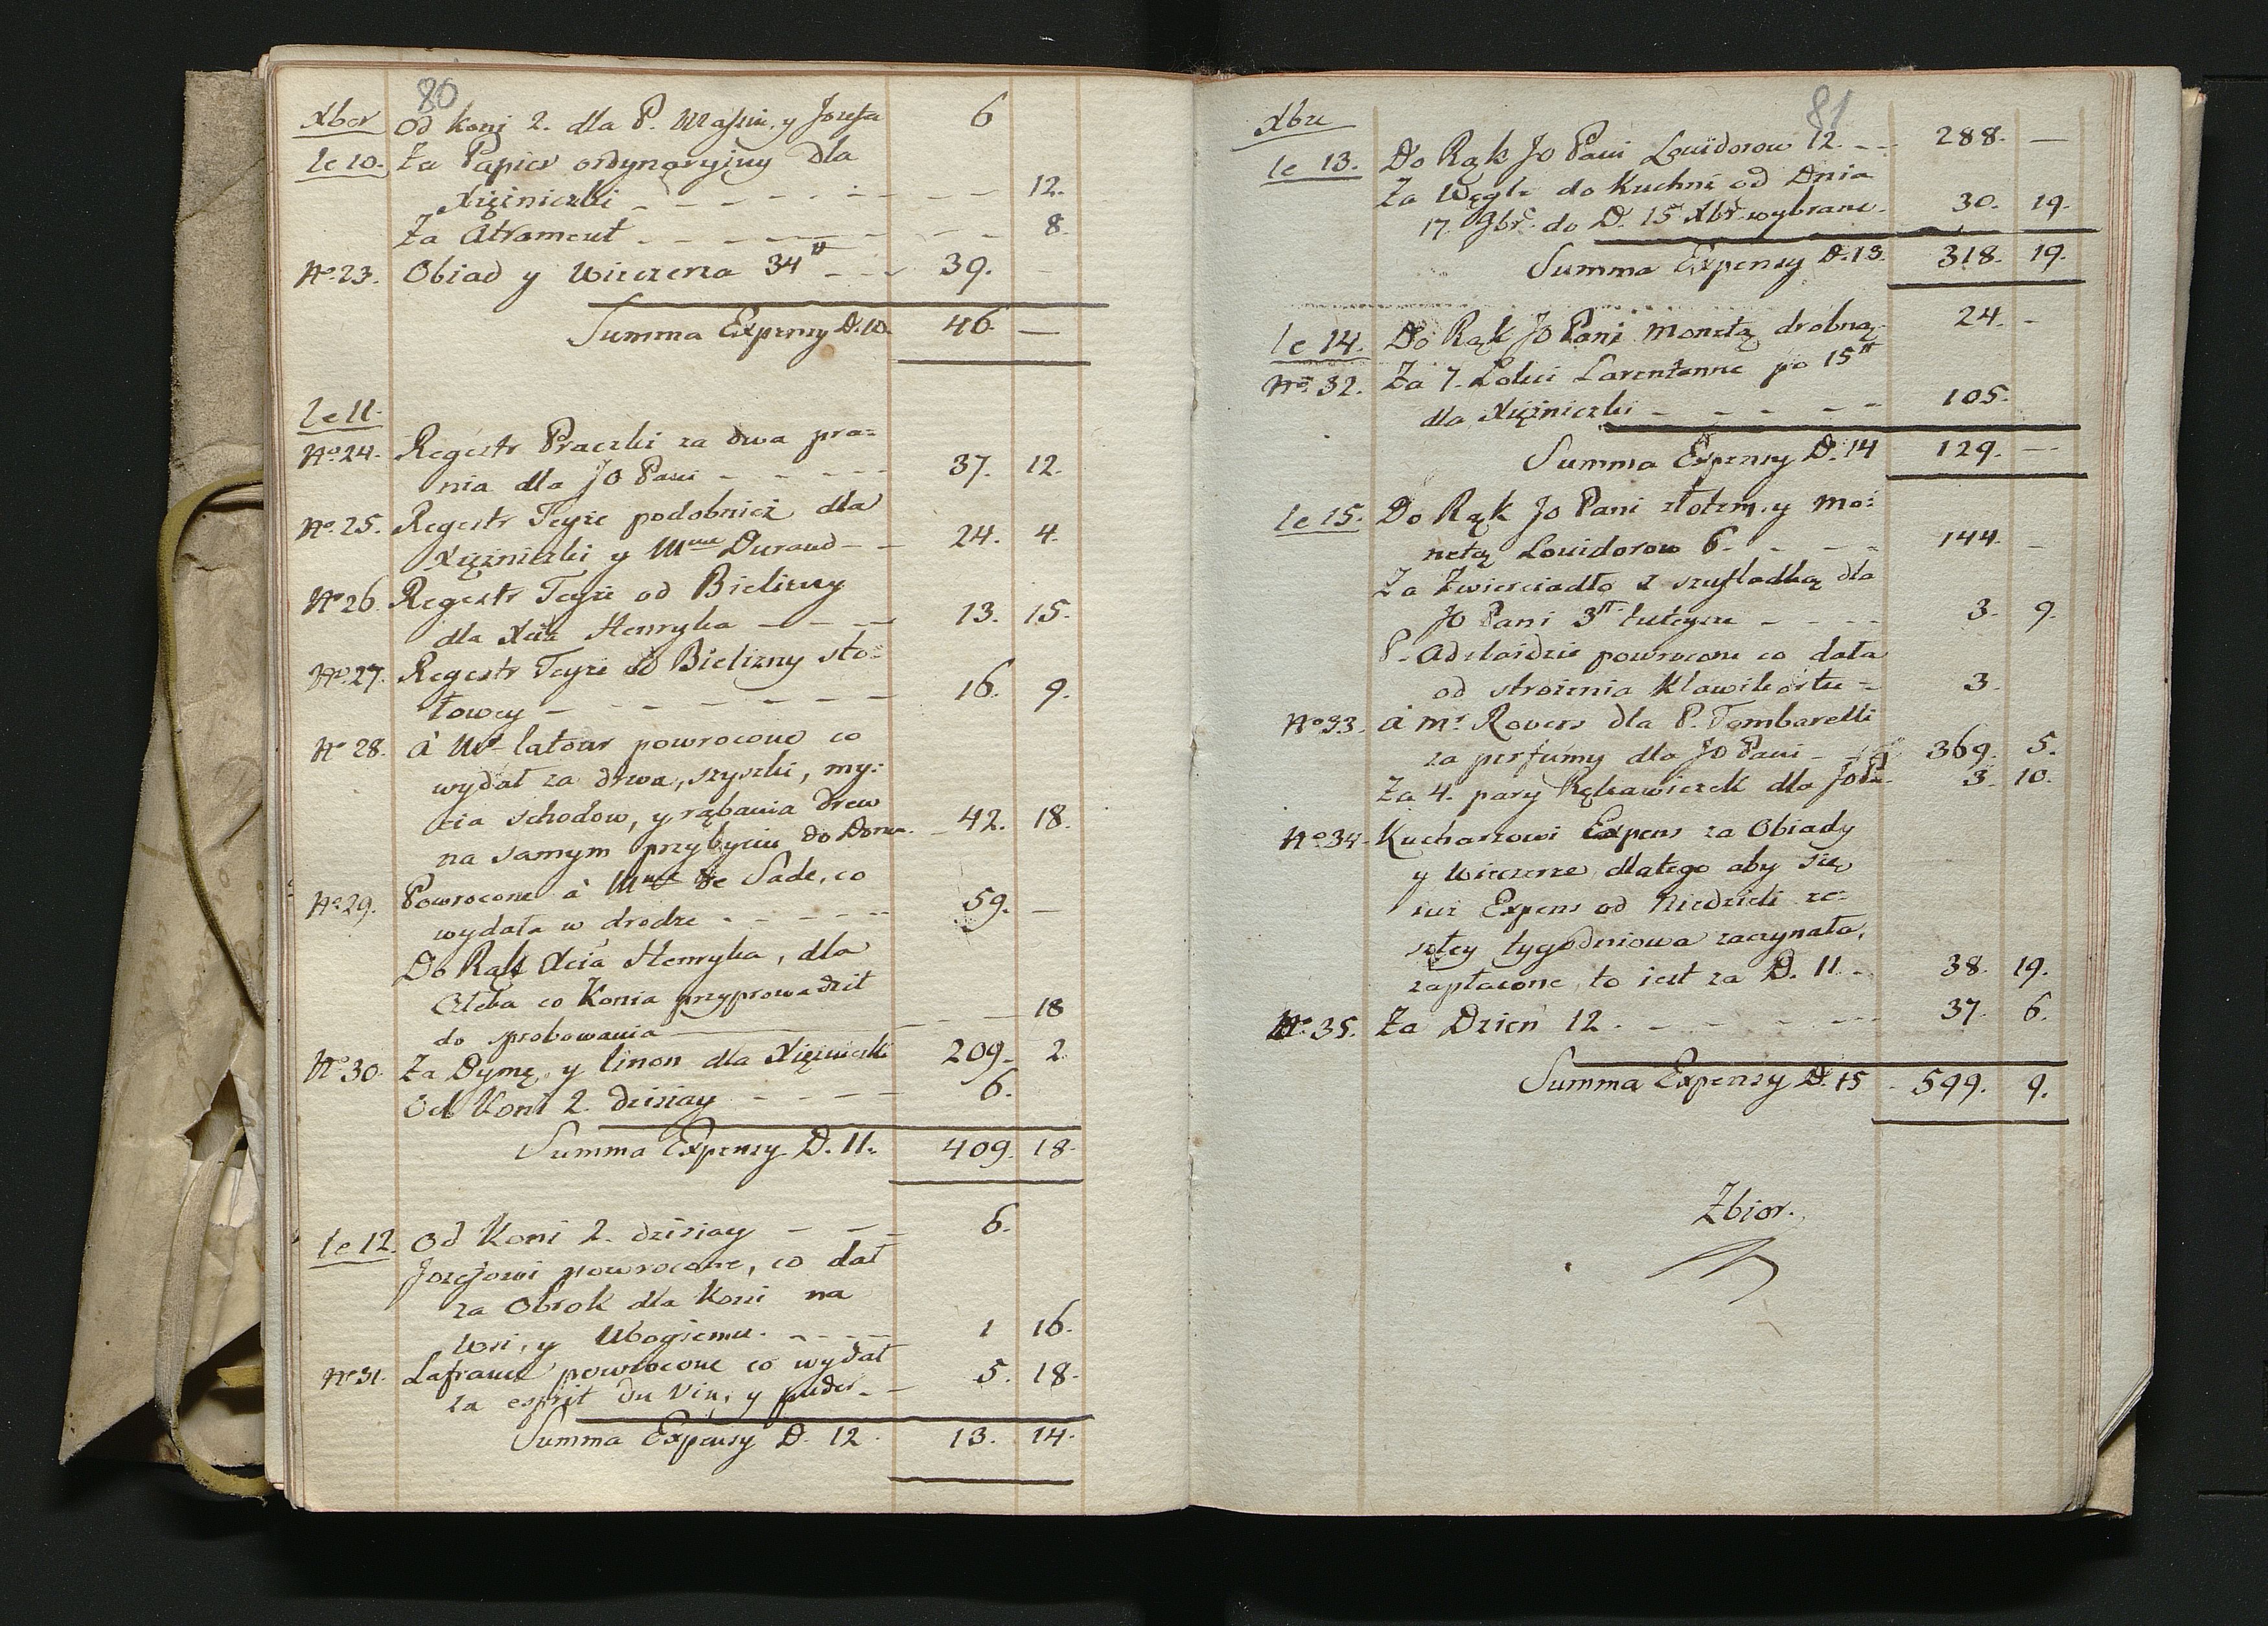 80
Xber Od koni 2. dla P. Massin. y Jozefa 6
le 10. Za Papier ordynaryiny dla
Xiężniczki - - - - - - - 12.
Za Atrament - - - - - - - 8.
No. 23. Obiad y Wieczerza 34# - - - 39. -
Summa Expensy D. 10. 46 —
le 11.
No. 24. Regestr Praczki za dwa pra=
nia dla JO Pani - - - - - 37. 12.
No. 25. Regestr Teyże podobnież dla
Xiężniczki y Mme Durand - - 24. 4.
No 26. Regestr Teyże od Bielizny
dla Xcia Henryka - - - 13. 15.
No. 27. Regestr Teyże od Bielizny sto=
łowey - - - - - - - 16. 9.
No 28. à Mr latour powrocono co
wydał za drwa, szyszki, my=
cia schodow, y rąbania drew
na samym przybyciu do Domu. - 42. 18.
No. 29. Powrocone à Mme de Sade, co
wydała w drodze - - - - - - 59. —
Do Rąk Xcia Henryka, dla
Człeka co Konia przyprowadził
do sprobowania — — — 18
No 30. Za Dymę y linon dla Xiężniczki 209. 2.
Od Koni 2. dzisiay - - - - 6.
Summa Expensy D. 11. 409. 18.
le 12. Od Koni 2. dzisiay - - - 6.
Jozefowi powrocone, co dał
za Obrok dla Koni na
Wsi, y Ubogiemu. - - - - 1 16.
No 31. Lafrance powrocone co wydał
za esprit du Vin, y puder - - 5. 18.
Summa Expensy D. 12. 13. 14.
81
Xbre
le 13. Do Rąk JO Pani Louidorow 12. - - 288. —
Za Węgle do Kuchni od Dnia
17. 9br. do D. 15 Xbr. wybrane. 30. 19.
Summa Expensy D. 13. 318. 19.
le 14. Do Rąk JO Pani Monetą drobną 24. -
No. 32. Za 7. Łokci Larentanne po 15#
dla Xiężniczki - - - - - 105.
Summa Expensy D. 14 129. —
le 15. Do Rąk JO Pani złotem, y mo=
netą Louidorow 6. - - - 144. -
Za Zwierciadło z szufladką dla
JO Pani 3# tuteysze - - - - 3. 9.
P. Adelaidzie powrocone co dała
od stroienia Klawikortu - 3.
No 33. à Mr. Rovers dla P. Tombarelli
za perfumy dla JO Pani - - 369. 5.
Za 4. pary Rękawiczek dla JO Pa. 3. 10.
No 34. Kucharzowi Expens za Obiady
y Wieczerze dlatego aby się
iuż Expens od Niedzieli ze=
szłey tygodniowa zaczynała,
zapłacone, to iest za D. 11 - 38. 19.
No. 35. Za Dzień 12. - - - - - - 37. 6.
Summa Expensy D. 15 - 599. 9.
Zbior.